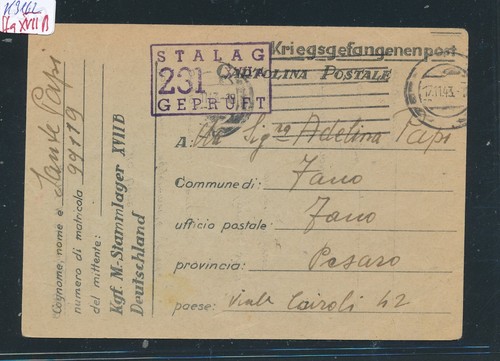 Stg XVII B
Kriegsgefangenenpost
CARTOLINA POSTALE
STALAG
231
GEPRÜFT
17.11.43
A: Sig.ra Adelina Papi
Commune di: Fano
ufficio postale: Fano
provincia: Pesaro
paese: Viale Cairoli 42
Cognome, nome e Sante Papi
numero di matricola 99119
del mittente:
Kgf. M.-Stammlager XVII B
Deutschland